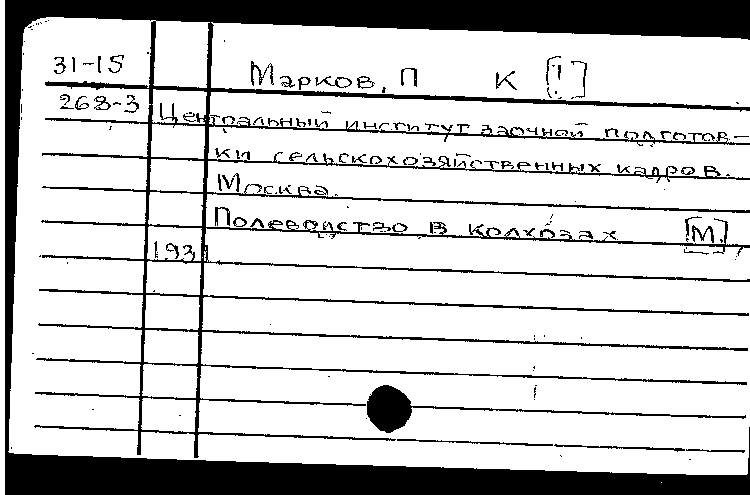 31-15 Марков, П К [!]
268-3 Центральный институт заочной подготов-
ки сельскохозяйственных кадров.
Москва.
Полеводство в колхозах [М],
1931